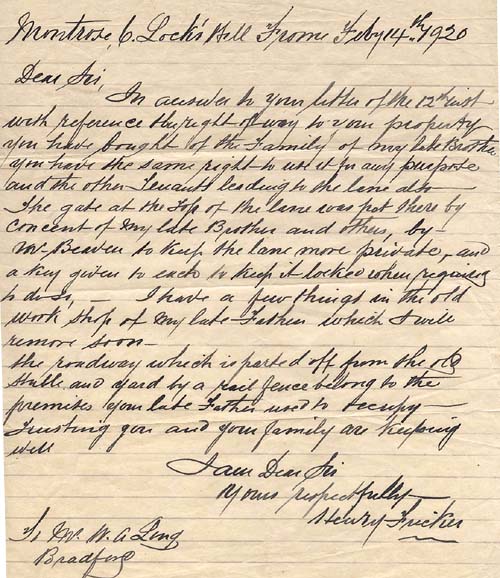 Montrose, 6. Lock's Hill Frome Feby 14th 1920
Dear Sir,
In answer to your letter of the 12th inst
with reference the right of way to your property
you have bought of the Family of my late Brother
you have the same right to use it for any purpose
and the other Tenants leading to the lane also —
The gate at the top of the lane was put there by
concent of my late Brother and others, by —
Mr. Beaven to keep the lane more private, and
a key given to each to keep it locked when requiring
to do so, — I have a few things in the old
work shop of my late Father which I will
remove soon —
the roadway which is parted off from the old
Stable and yard by a rail fence belong to the
premises your late Father used to occupy —
Trusting you and your family are keeping
well
I am Dear Sir
Yours respectfully
Henry Fricker
To Mr. W. A Long
Bradford